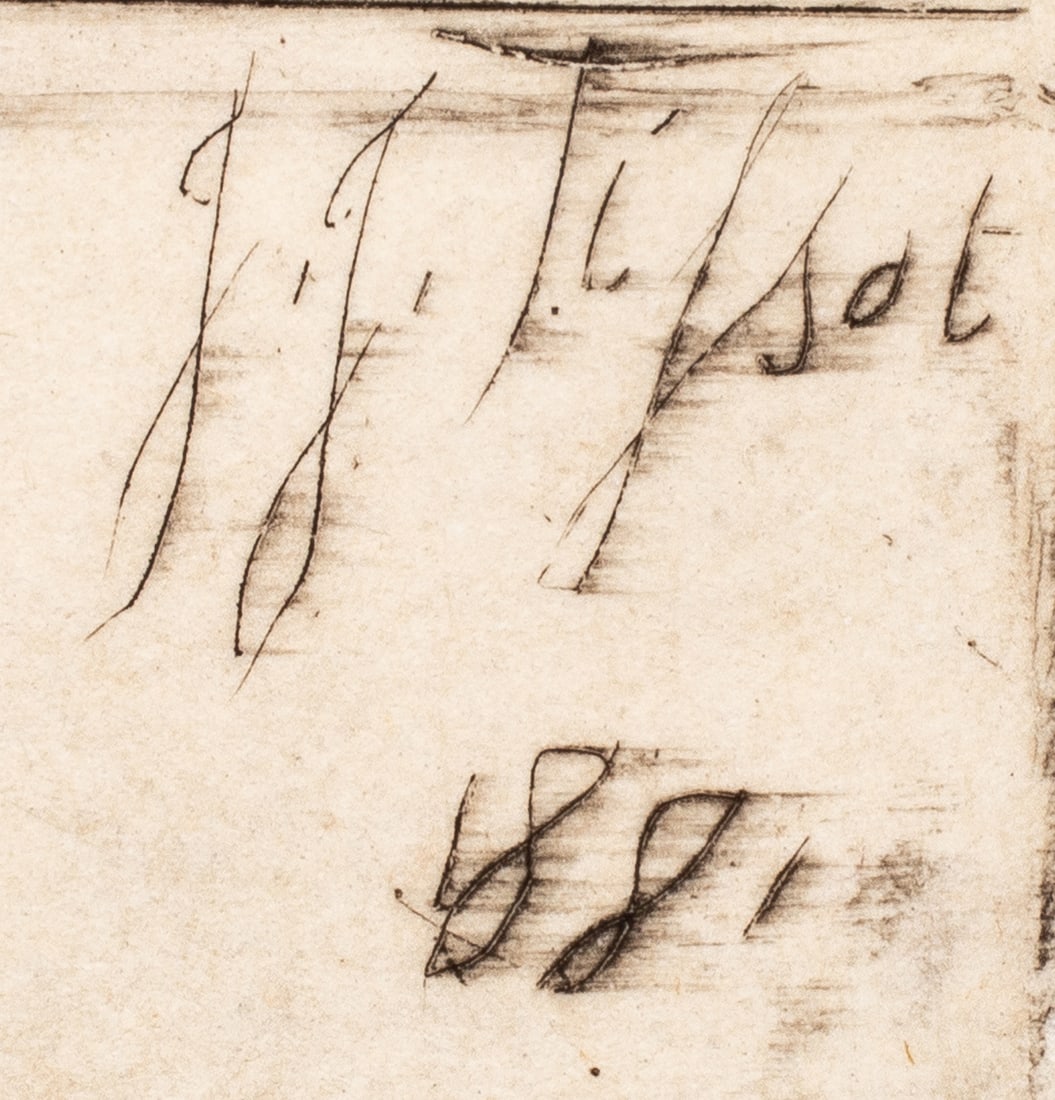 J. J. Tissot
1881